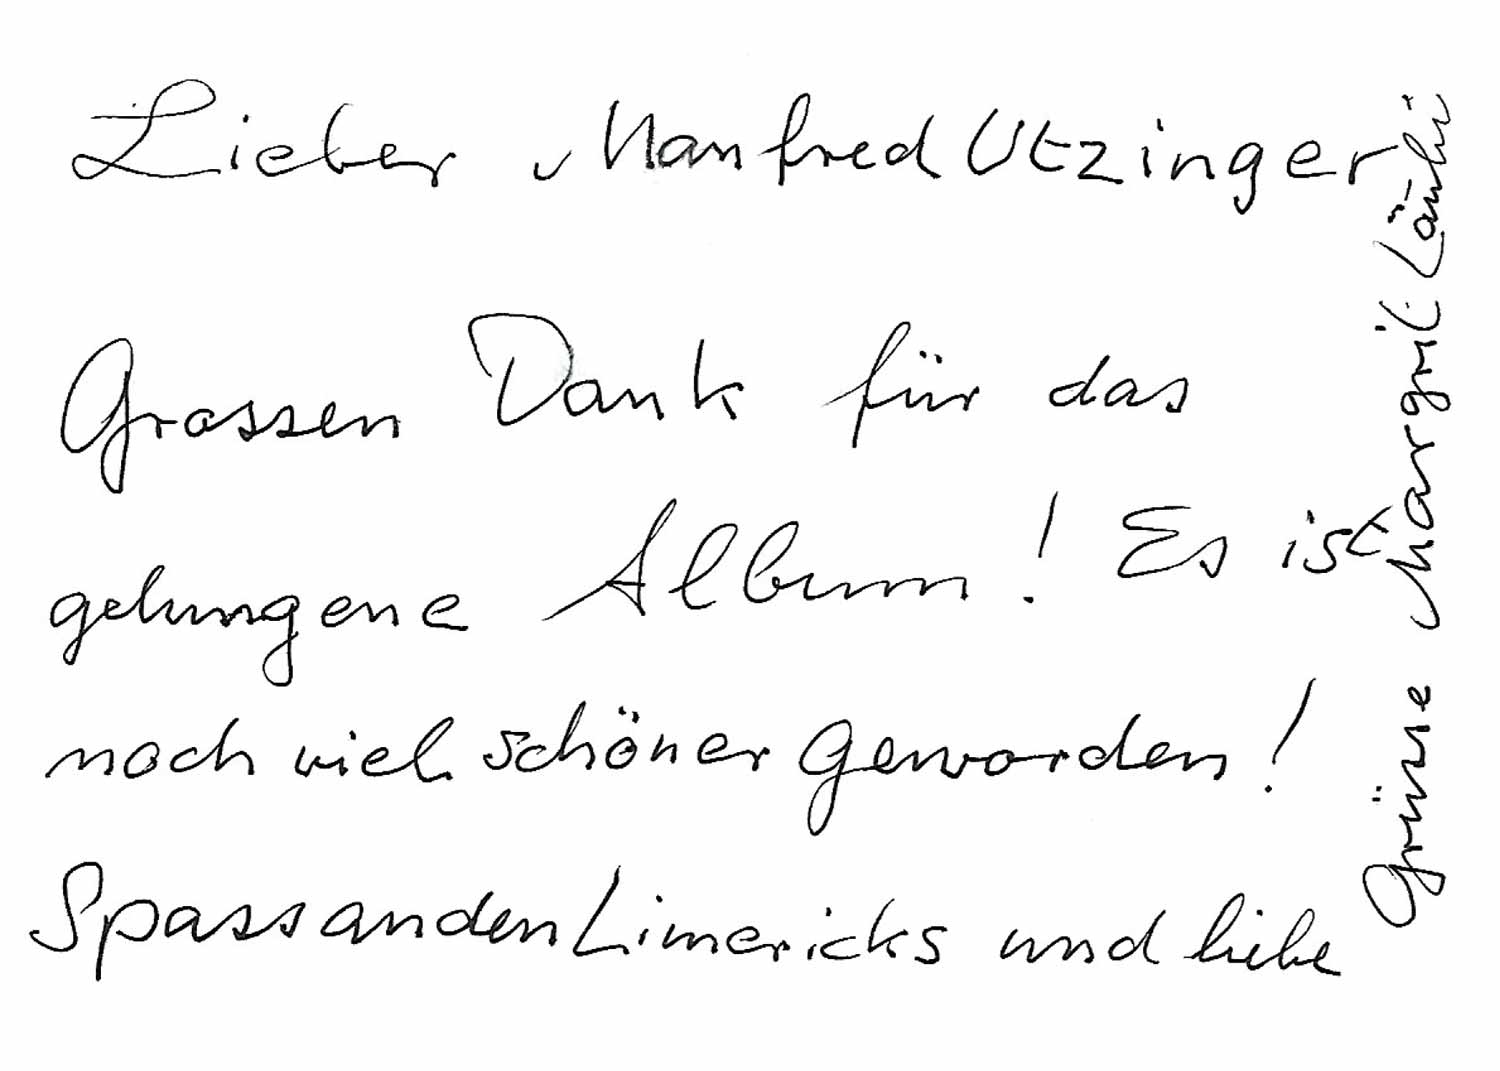 Lieber Manfred Utzinger
Grossen Dank für das
gelungene Album! Es ist
noch viel schöner geworden!
Spass an den Limericks und liebe
Grüsse Margrit Läuchli